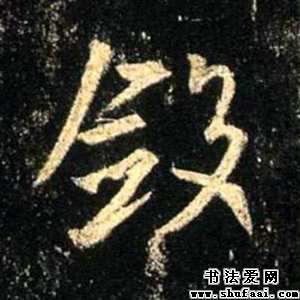 敛
书法爱网
www.shufaai.com